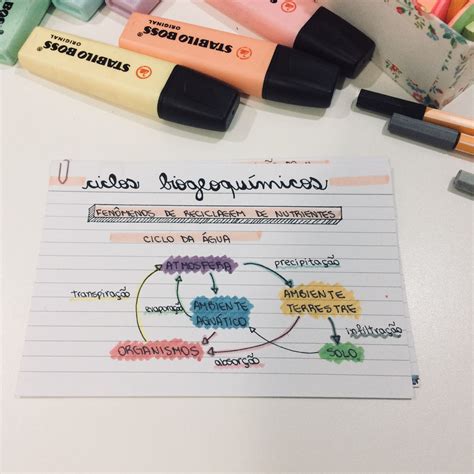 STABILO BOSS
ORIGINAL
STABILO BOSS
ORIGINAL
STABILO BOSS
ORIGINAL
ciclos biogeoquímicos
FENÔMENOS DE RECICLAGEM DE NUTRIENTES
CICLO DA ÁGUA
ATMOSFERA
precipitação
transpiração
evaporação
AMBIENTE
AQUÁTICO
AMBIENTE
TERRESTRE
infiltração
ORGANISMOS
absorção
SOLO